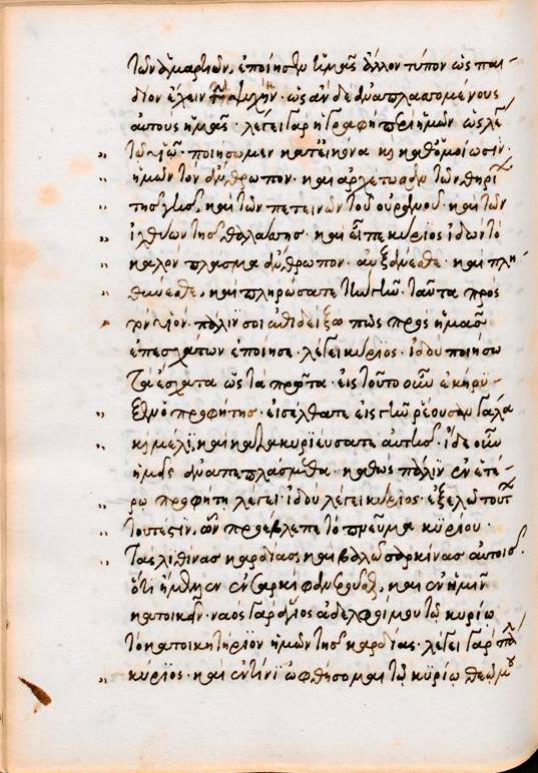 τῶν ἁμαρτιῶν, ἐποίησεν ἡμᾶς ἄλλον τύπον ὡς παι-
δίον ἔχειν τὴν ψυχὴν· ὡς ἂν δὲ ἀναπλασσομένους
αὐτοὺς ἡμᾶς· λέγει γὰρ ἡ γραφὴ περὶ ἡμῶν ὡς λέγ
τῷ υἱῷ· ποιήσωμεν κατ' εἰκόνα κ̀ καθ' ὁμοίωσιν·
ἡμῶν τὸν ἄνθρωπον· καὶ ἀρχέτωσαν τῶν θηρί
τῆς γῆς, καὶ τῶν πετεινῶν τοῦ οὐρανοῦ· καὶ τῶν
ἰχθύων τῆς θαλάσσης· καὶ εἶπε κύριος ἰδὼν τὸ
καλὸν πλάσμα ἄνθρωπον· αὐξάνεσθε· καὶ πλη-
θύνεσθε, καὶ πληρώσατε τὴν γῆν· ταῦτα πρὸς
τὸν υἱόν· πάλιν σοι ἐπιδείξω πῶς πρὸς ἡμᾶς
ἐπ' ἐσχάτων ἐποίησε· λέγει κύριος· ἰδοὺ ποιήσω
τὰ ἔσχατα ὡς τὰ πρῶτα· εἰς τοῦτο οὖν ἐκήρυ-
ξεν ὁ προφήτης· εἰσέλθατε εἰς γῆν ῥέουσαν γάλα
κ̀ μέλι, καὶ κατακυριεύσατε αὐτῆς· ἴδε οὖν
ἡμεῖς ἀναπεπλάσμεθα· καθὼς πάλιν ἐν ἑτέ-
ρῳ προφήτῃ λέγει· ἰδοὺ λέγει κύριος· ἐξελῶ τούτ
τουτέστιν, ὧν προέβλεπε τὸ πνεῦμα κυρίου·
τὰς λιθίνας καρδίας, καὶ βαλῶ σαρκίνας αὐτοῖς.
ὅτι ἤμελλεν ἐν σαρκὶ φανεροῦσθαι, καὶ ἐν ἡμῖν
κατοικεῖν· ναὸς γὰρ ἅγιος ἀδελφοί μου τῷ κυρίῳ
τὸ κατοικητήριον ἡμῶν τῆς καρδίας· λέγει γὰρ πάλ
κύριος· καὶ ἐν τίνι ὀφθήσομαι τῷ κυρίῳ θεῷ μου